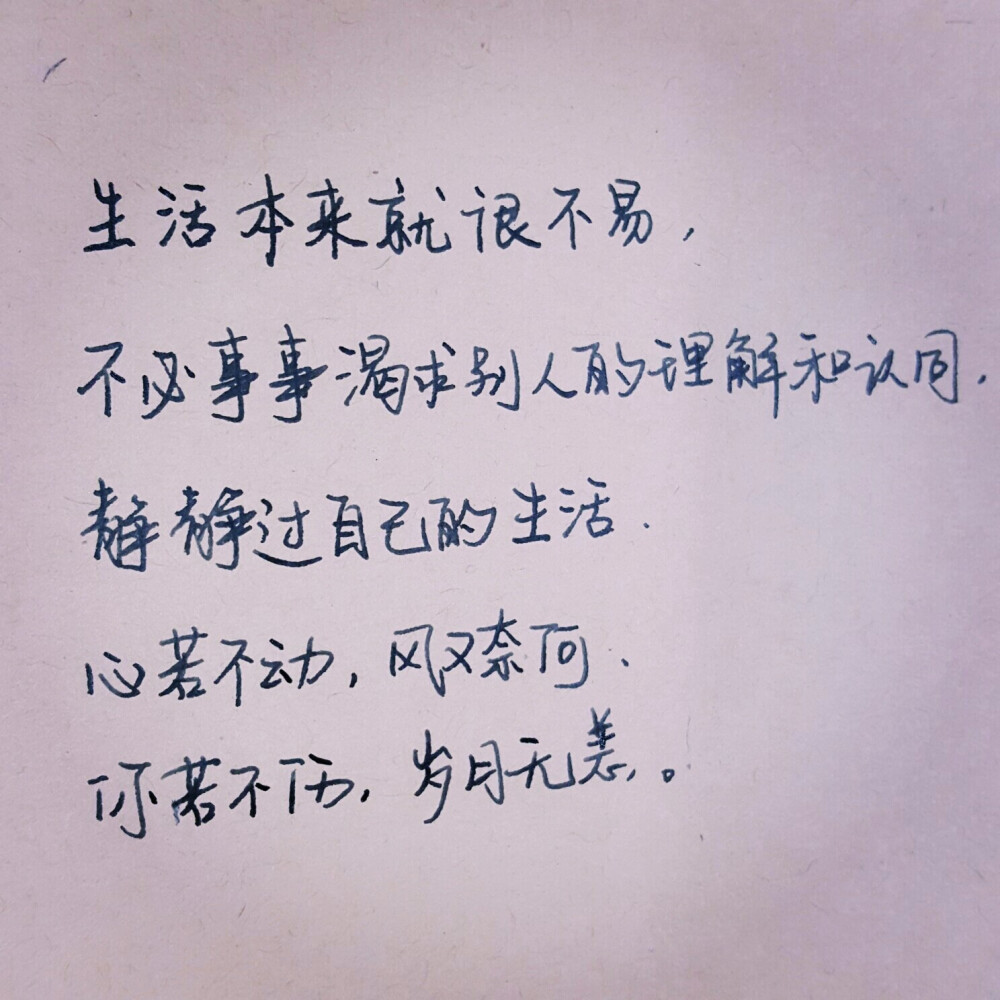 生活本来就很不易，
不必事事渴求别人的理解和认同，
静静过自己的生活．
心若不动，风又奈何．
你若不伤，岁月无恙。